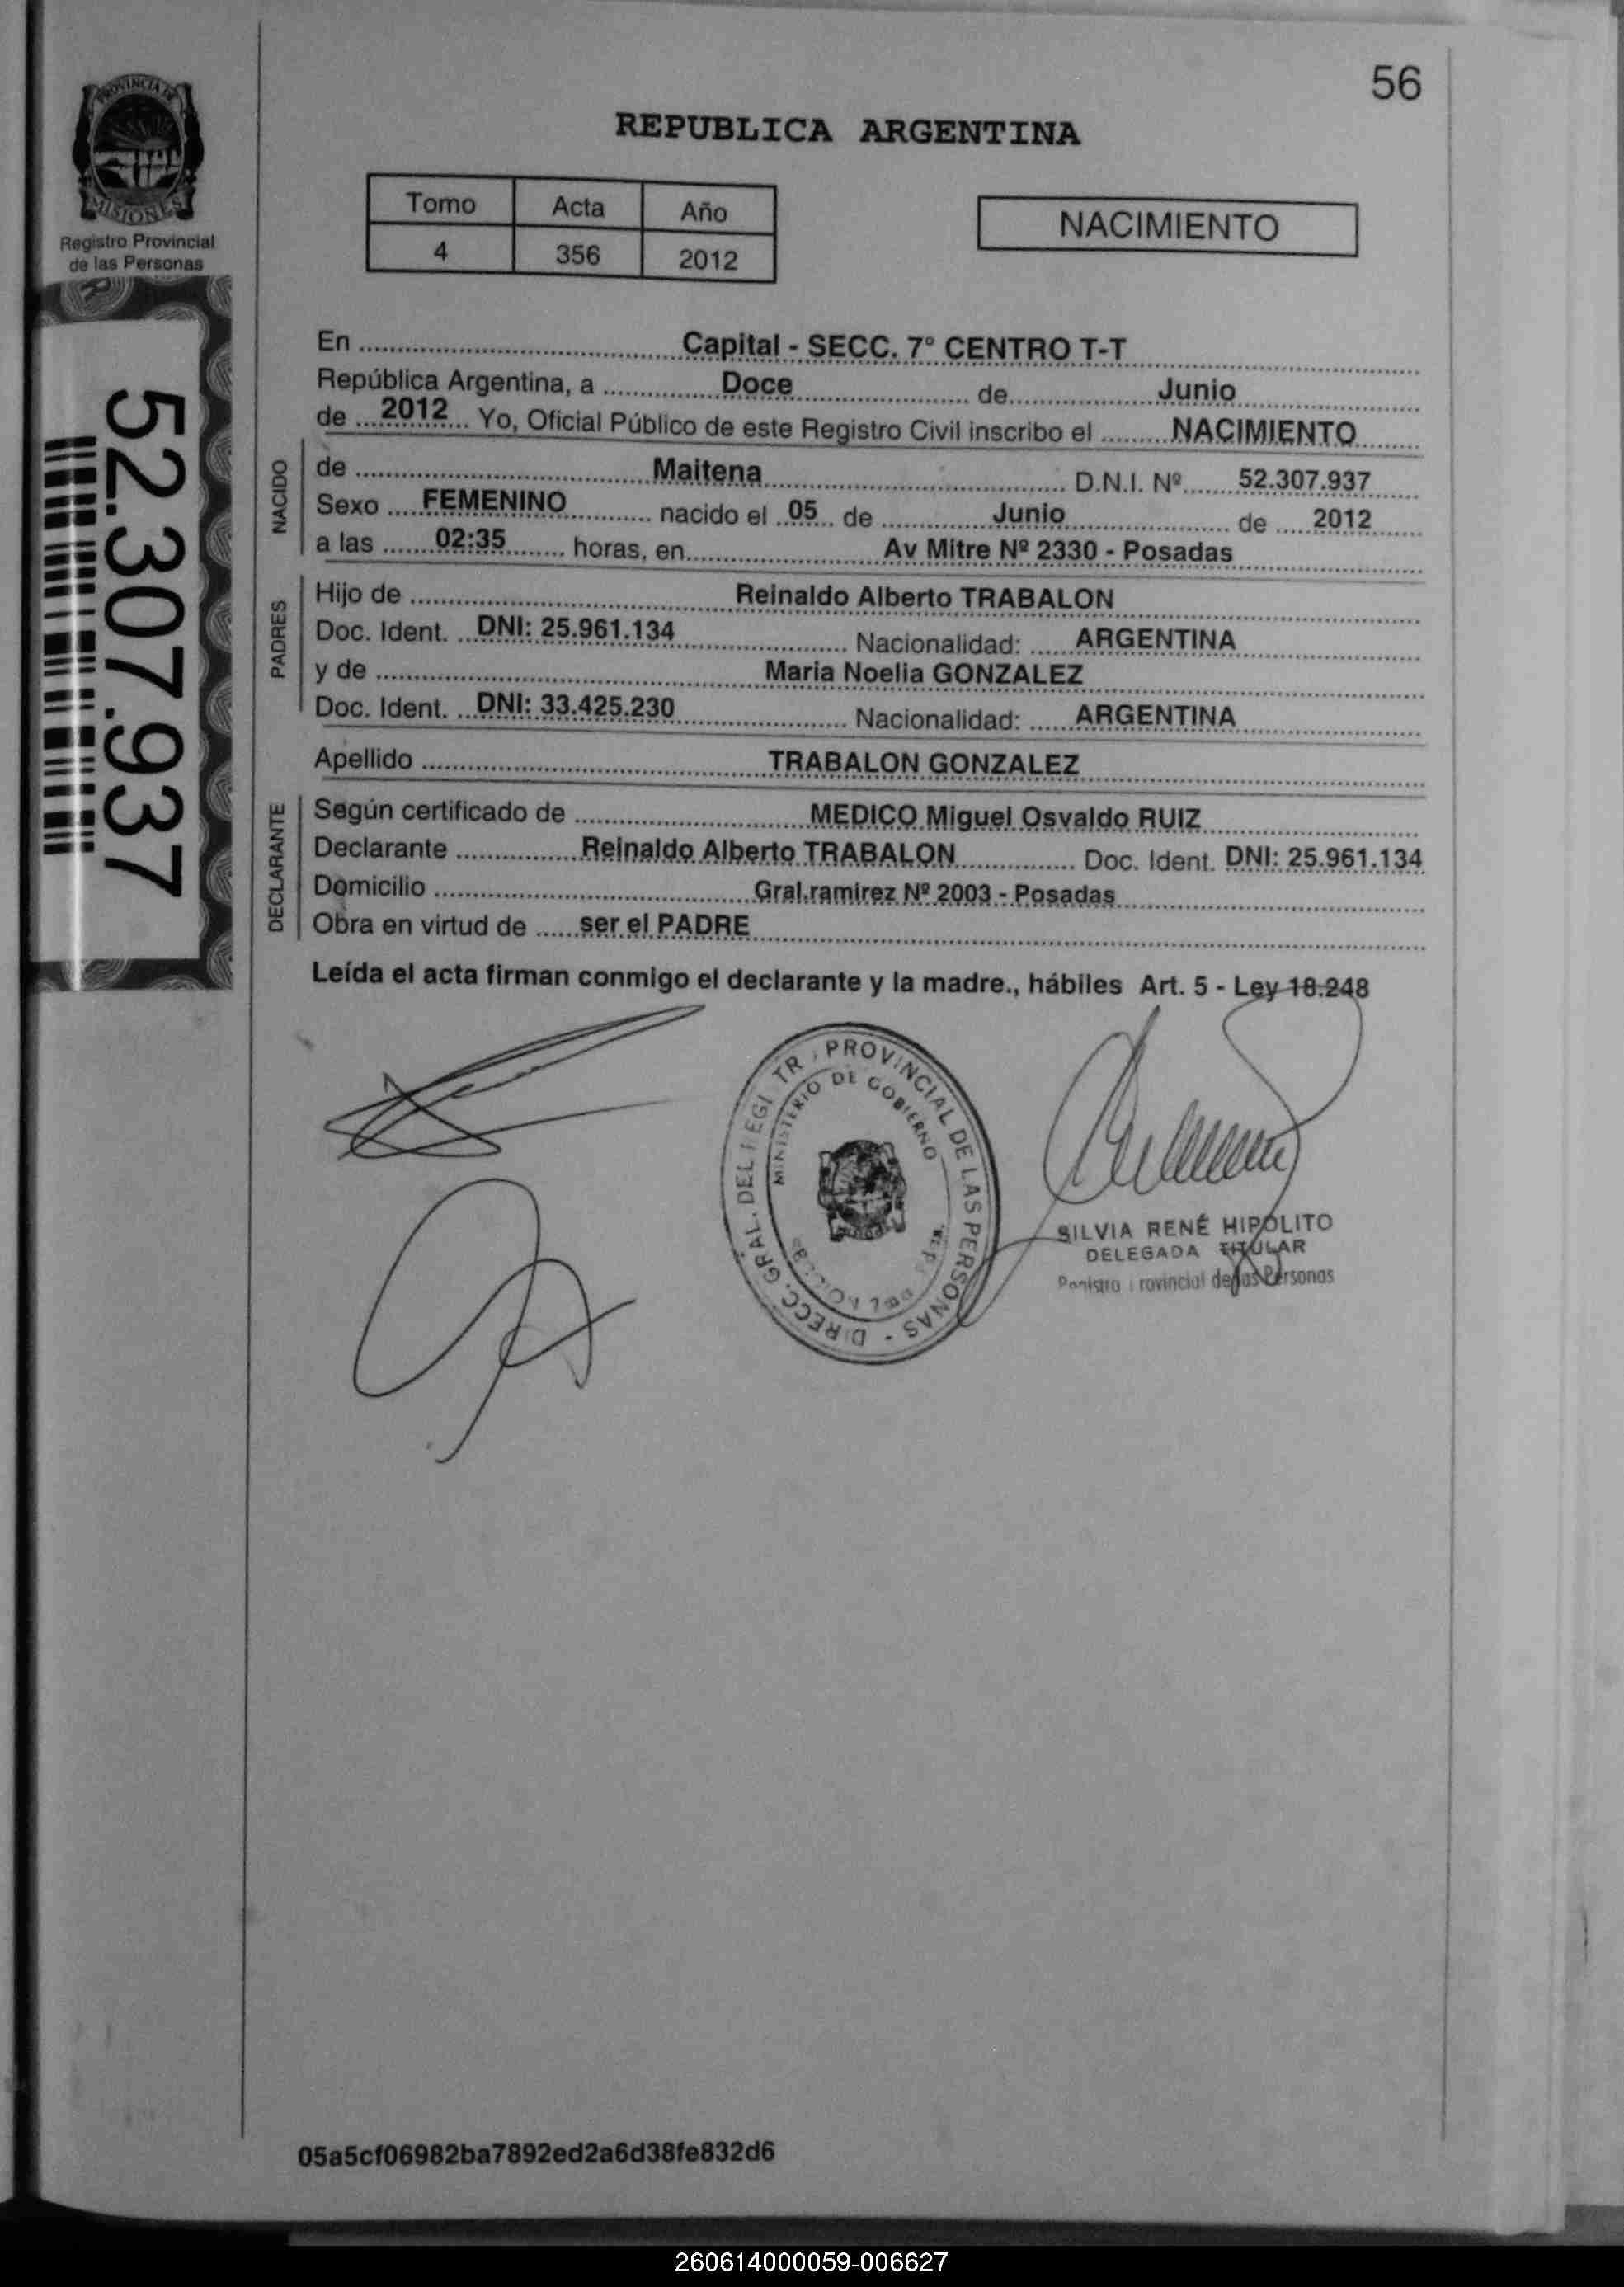 56
REPUBLICA ARGENTINA
PROVINCIA DE
MISIONES
Registro Provincial
de las Personas
Tomo Acta Año
4 356 2012
NACIMIENTO
52.307.937
En Capital - SECC. 7° CENTRO T-T
República Argentina, a Doce de Junio
de 2012 Yo, Oficial Público de este Registro Civil inscribo el NACIMIENTO
NACIDO
de Maitena D.N.I. Nº 52.307.937
Sexo FEMENINO nacido el 05 de Junio de 2012
a las 02:35 horas, en Av Mitre Nº 2330 - Posadas
PADRES
Hijo de Reinaldo Alberto TRABALON
Doc. Ident. DNI: 25.961.134 Nacionalidad: ARGENTINA
y de Maria Noelia GONZALEZ
Doc. Ident. DNI: 33.425.230 Nacionalidad: ARGENTINA
Apellido TRABALON GONZALEZ
DECLARANTE
Según certificado de MEDICO Miguel Osvaldo RUIZ
Declarante Reinaldo Alberto TRABALON Doc. Ident. DNI: 25.961.134
Domicilio Gral.ramirez Nº 2003 - Posadas
Obra en virtud de ser el PADRE
Leída el acta firman conmigo el declarante y la madre., hábiles Art. 5 - Ley 18.248
DIRECC. GRAL. DEL REGISTR. PROVINCIAL DE LAS PERSONAS
MINISTERIO DE GOBIERNO
SILVIA RENÉ HIPÓLITO
DELEGADA TITULAR
Registro Provincial de las Personas
05a5cf06982ba7892ed2a6d38fe832d6
260614000059-006627